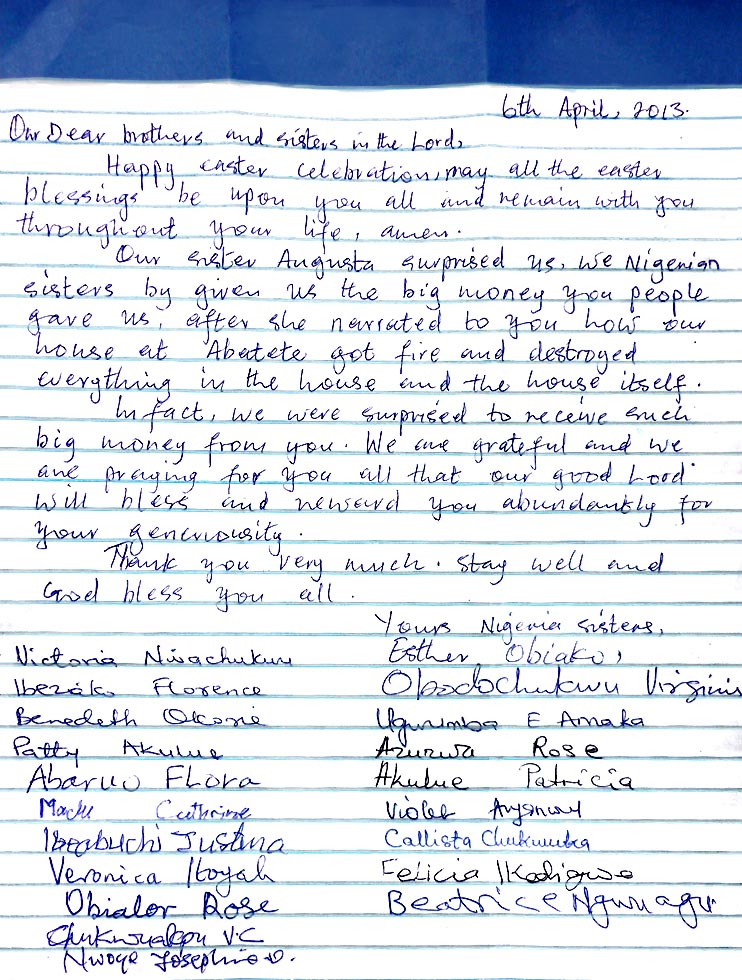 6th April, 2013.
Our Dear brothers and sisters in the Lord,
Happy easter celebration, may all the easter
blessings be upon you all and remain with you
throughout your life, amen.
Our sister Augusta surprised us, we Nigenian
sisters by given us the big money you people
gave us, after she narrated to you how our
house at Abatete got fire and destroyed
everything in the house and the house itself.
In fact, we were surprised to receive such
big money from you. We are grateful and we
are praying for you all that our good Lord
will bless and reward you abundantly for
your generiousity.
Thank you very much. Stay well and
God bless you all.
Yours Nigeria sisters,
Victoria Nwachukwu Esther Obiako,
Ibeziako Florence Obodochukwu Virginis
Benedeth Okorie Ugurumba E Amaka
Patty Akulue Azuzwa Rose
Abaruo FLORA Akulue Patricia
Madu Cathrine Violet
Ibeabuchi Justina Callista Chukwuka
Veronica Iloyah Felicia Ikadigwo
Obialor Rose Beatrice Ngwuagu
V.C
Nwoye Josephine O.